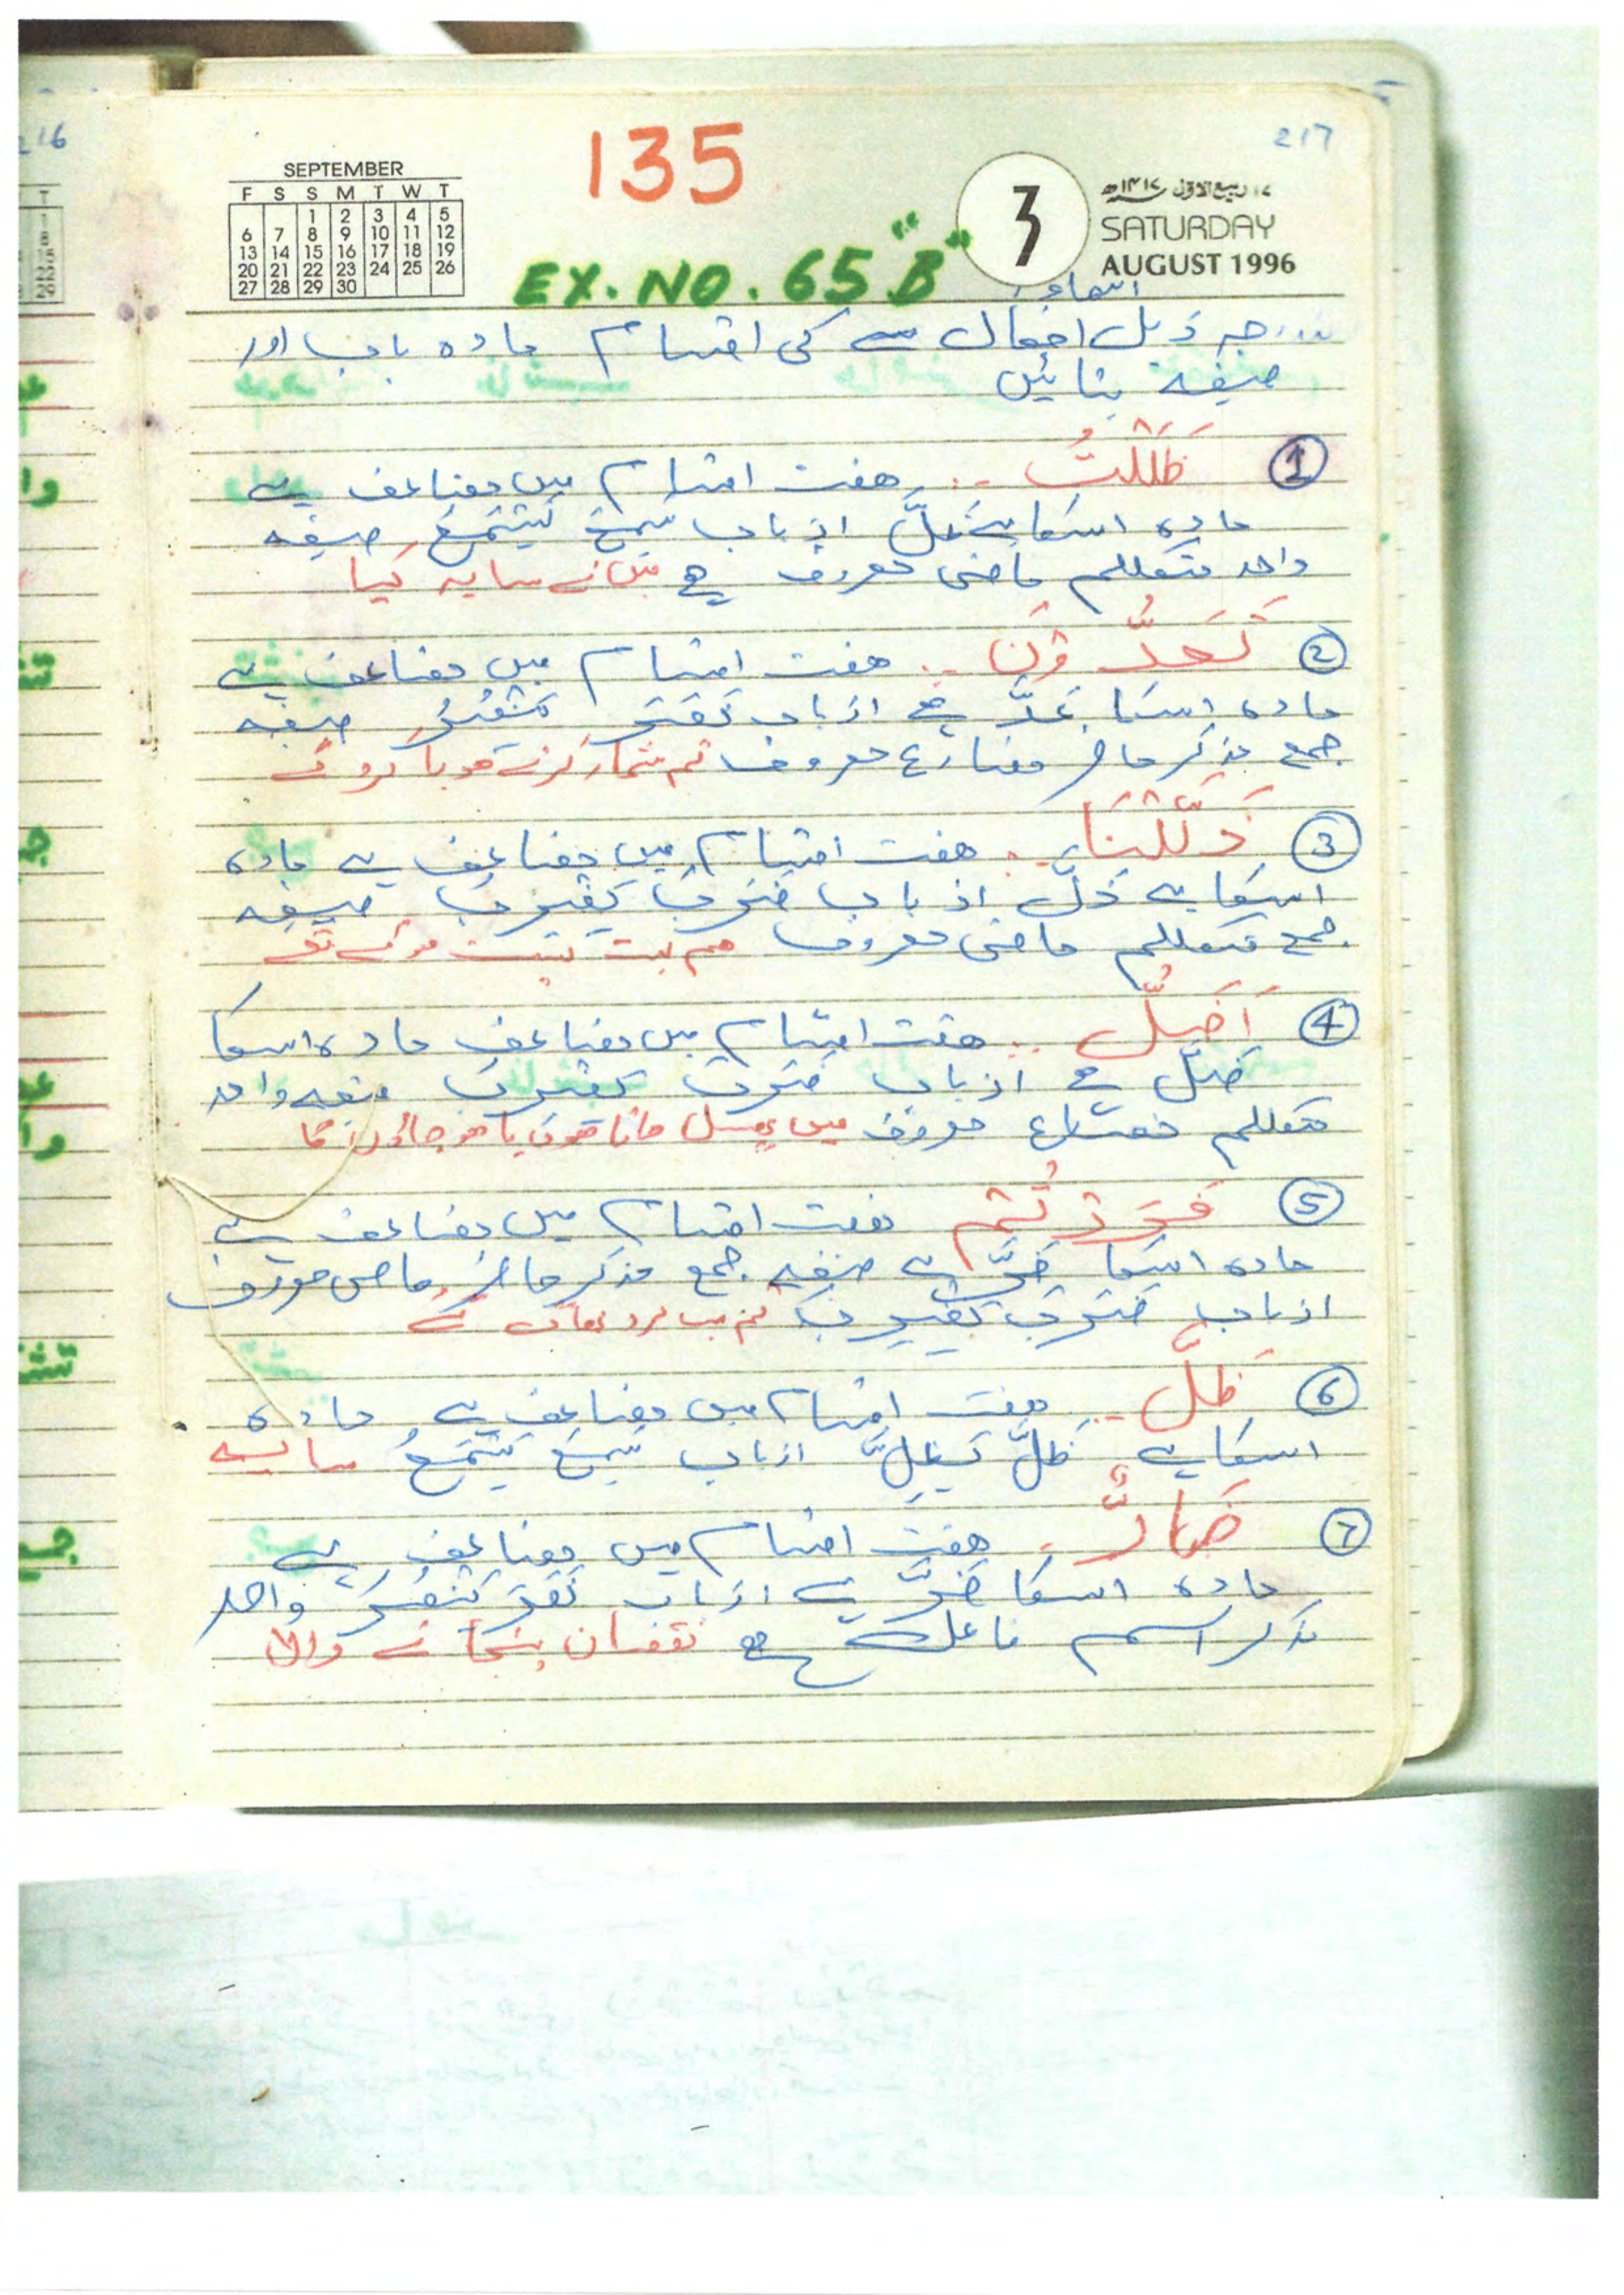 216
217
135
SEPTEMBER
F S S M T W T
1 2 3 4 5
6 7 8 9 10 11 12
13 14 15 16 17 18 19
20 21 22 23 24 25 26
27 28 29 30
3
۱۷ ربیع الاول ۱۴۱۷ھ
SATURDAY
AUGUST 1996
EX. NO. 65 "B"
ذیل افعال کی اقسام مادہ باب اور
صیغہ بتائیں
1 ظَلَلْتُ ہفت اقسام میں مضاعف ہے
مادہ اسکا ظلَّ از باب سَمِعَ یَسْمَعُ صیغہ
واحد متکلم ماضی معروف ہے میں نے سایہ کیا
2 ہفت اقسام میں مضاعف ہے
مادہ اسکا عَدَّ ہے از باب نَصَرَ یَنْصُرُ صیغہ
جمع مذکر حاضر مضارع معروف تم شمار کرتے ہو یا کروگے
3 ذَلَلْنَا ہفت اقسام میں مضاعف ہے مادہ
اسکا ہے ذلَّ از باب ضَرَبَ یَضْرِبُ صیغہ
جمع متکلم ماضی معروف ہم
4 اَضِلُّ ہفت اقسام میں مضاعف مادہ اسکا
ضلَّ ہے از باب ضَرَبَ یَضْرِبُ صیغہ واحد
متکلم مضارع معروف میں جاتا ہوں یا ہو جاؤں گا
5 فَرَرْتُمْ ہفت اقسام میں مضاعف ہے
مادہ اسکا فَرَّ ہے صیغہ جمع مذکر حاضر ماضی معروف
از باب ضَرَبَ یَضْرِبُ تم سب مرد بھاگے
6 ظلَّ ہفت اقسام میں مضاعف ہے مادہ
اسکا ہے ظَلَّ یَظِلُّ از باب سَمِعَ یَسْمَعُ سایہ
7 ضَارٌّ ہفت اقسام میں مضاعف ہے
مادہ اسکا ضَرَّ ہے از باب نَصَرَ یَنْصُرُ واحد
مذکر اسم فاعل ہے نقصان پہنچانے والا